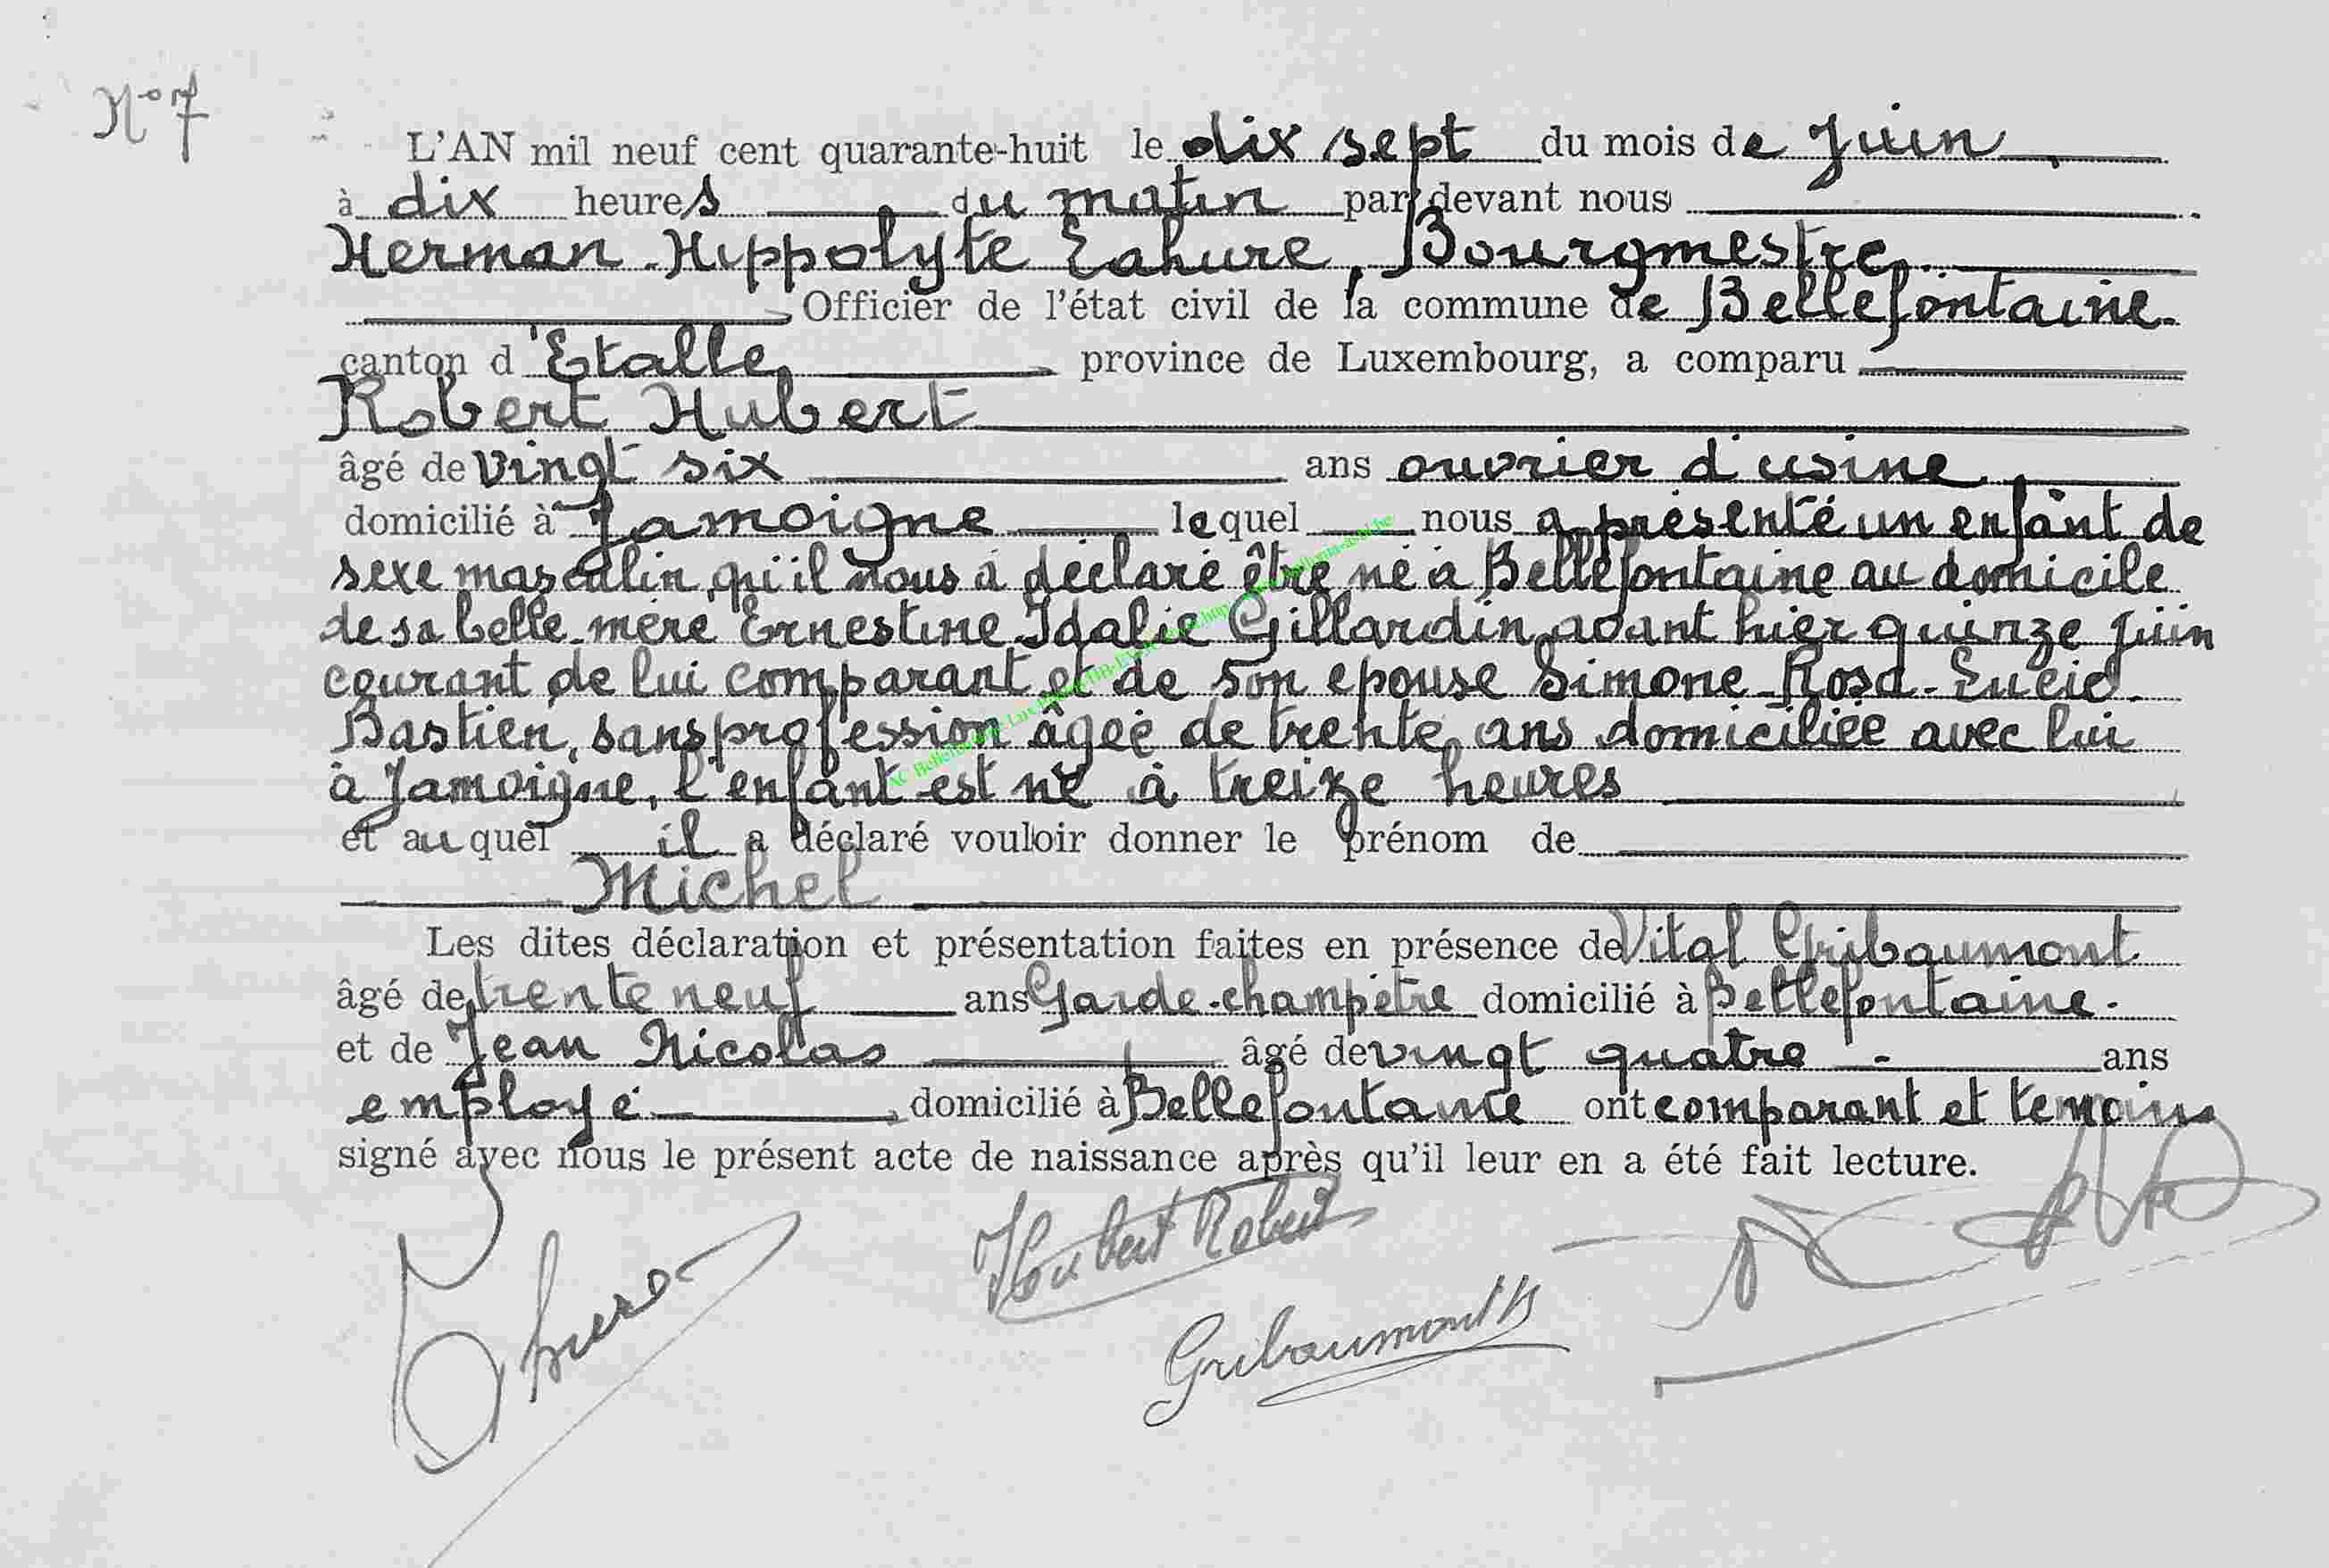 N° 7
L'AN mil neuf cent quarante-huit le dix sept du mois de Juin
à dix heures du matin par devant nous
Herman-Hippolyte Lahure, Bourgmestre
Officier de l'état civil de la commune de Bellefontaine
canton d'Etalle province de Luxembourg, a comparu
Robert Hubert
âgé de vingt six ans ouvrier d'usine
domicilié à Jamoigne lequel nous a présenté un enfant de
sexe masculin, qu'il nous a déclaré être né à Bellefontaine au domicile
de sa belle-mère Ernestine Idalie Gillardin avant hier quinze juin
courant de lui comparant et de son epouse Simone-Rosa-Lucie
Bastien, sans profession âgée de trente ans domiciliée avec lui
à Jamoigne, l'enfant est né à treize heures
et auquel il a déclaré vouloir donner le prénom de
Michel
Les dites déclaration et présentation faites en présence de Vital Gribaumont
âgé de trente neuf ans Garde-champêtre domicilié à Bellefontaine
et de Jean Nicolas âgé de vingt quatre ans
employé domicilié à Bellefontaine ont comparant et temoins
signé avec nous le présent acte de naissance après qu'il leur en a été fait lecture.
Hubert Robert
Gribaumont